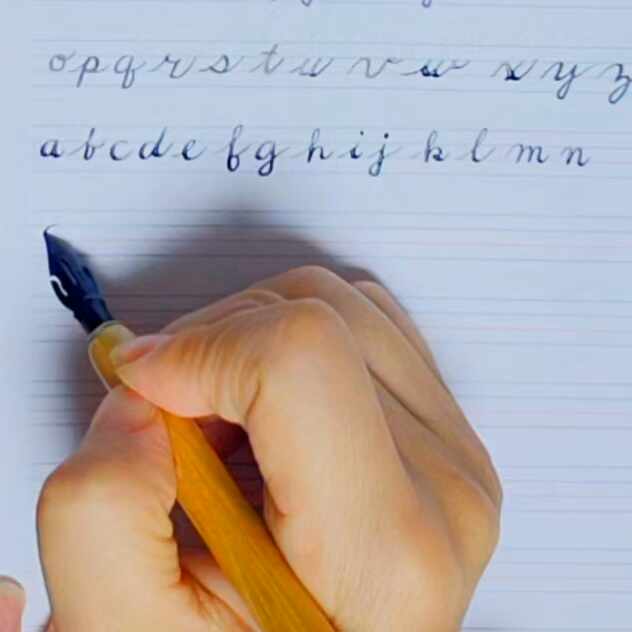 o p q r s t u v w x y z
a b c d e f g h i j k l m n